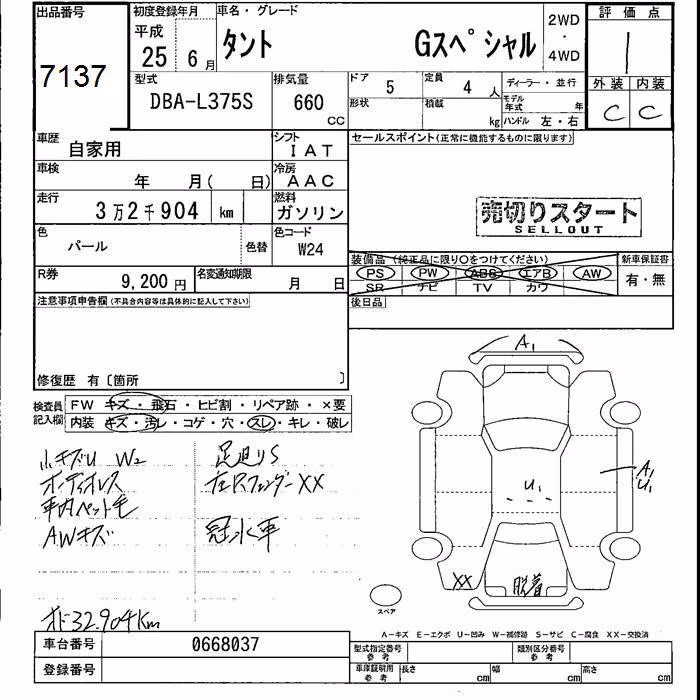 出品番号
7137
初度登録年月
平成
25 年 6 月
車名・グレード
タント Gスペシャル
2WD
・
4WD
評価点
1
外装 内装
C C
型式
DBA-L375S
排気量
660
CC
ドア 5
定員 4 人
ディーラー・並行
形状
積載
kg
モデル年式 年
ハンドル 左・右
車歴
自家用
シフト
IAT
セールスポイント(正常に機能するものに限ります)
車検
年 月( 日)
冷房
AAC
走行
3万2千904 km
燃料
ガソリン
売切りスタート
SELLOUT
色
パール
色替
色コード
W24
装備品(純正品に限り○をつけてください)
新車保証書
PS PW ABS エアB AW
SR ナビ TV カワ
有・無
R券
9,200 円
名変通知期限
月 日
後日品
注意事項申告欄(不具合内容等は具体的に記入して下さい)
修復歴 有〔箇所 〕
検査員記入欄
FW キズ・飛石・ヒビ割・リペア跡・×要
内装 キズ・汚レ・コゲ・穴・スレ・キレ・破レ
小キズU W2
足廻りS
ボディオレス
右Rフェンダー XX
車内ペット毛
AWキズ
冠水車
オド32.904Km
A1
U1
A1
U1
XX
脱着
スペア
A-キズ E-エクボ U-凹み W-補修跡 S-サビ C-腐食 XX-交換済
車台番号
0668037
登録番号
型式指定番号
参考
類別区分番号
参考
車庫証明用
参考
長さ cm 幅 cm 高さ cm